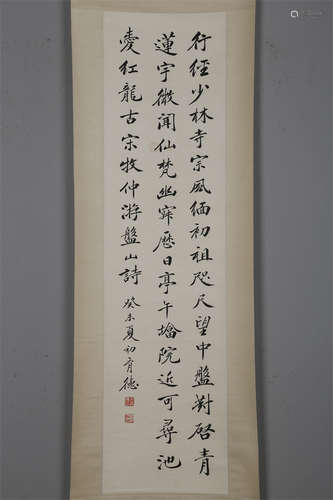 行經少林寺宗風緬初祖咫尺望中盤對啓青
蓮宇微聞仙梵幽寂歷日亭午墖院近可尋池
臺紅龍古宋牧仲游盤山詩癸未夏初育德